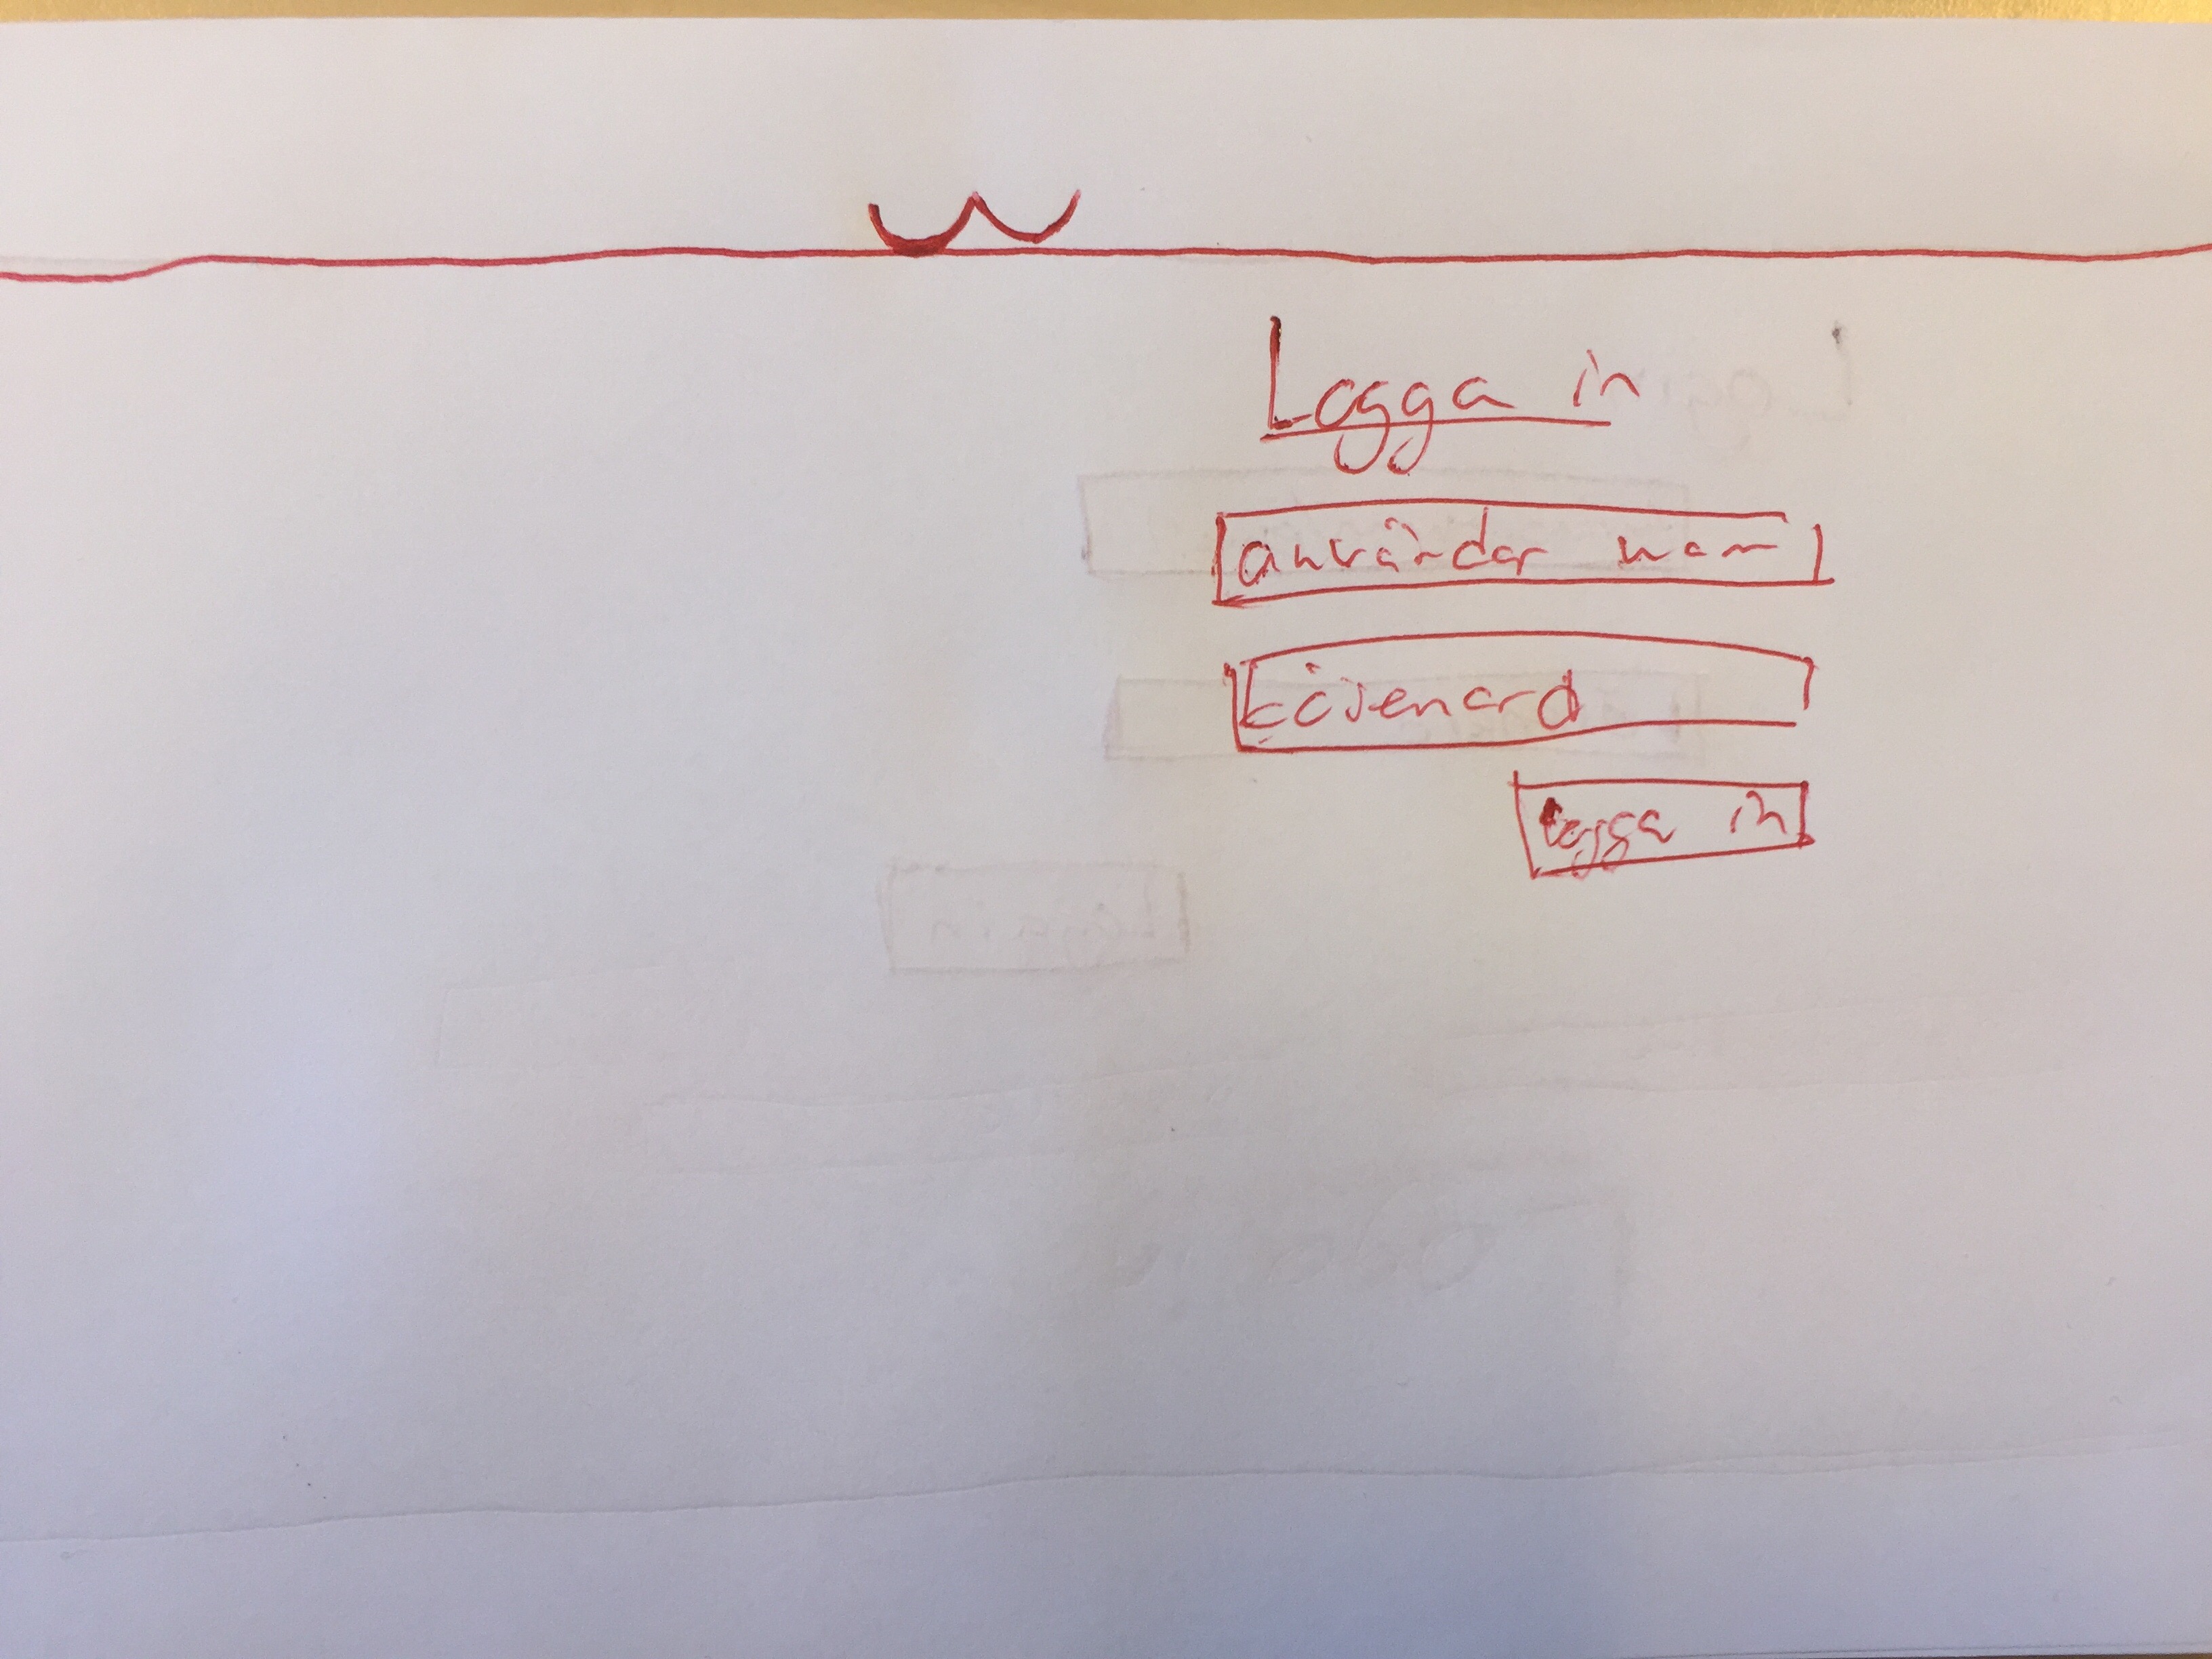 Logga in
användar namn
Lösenord
Logga in